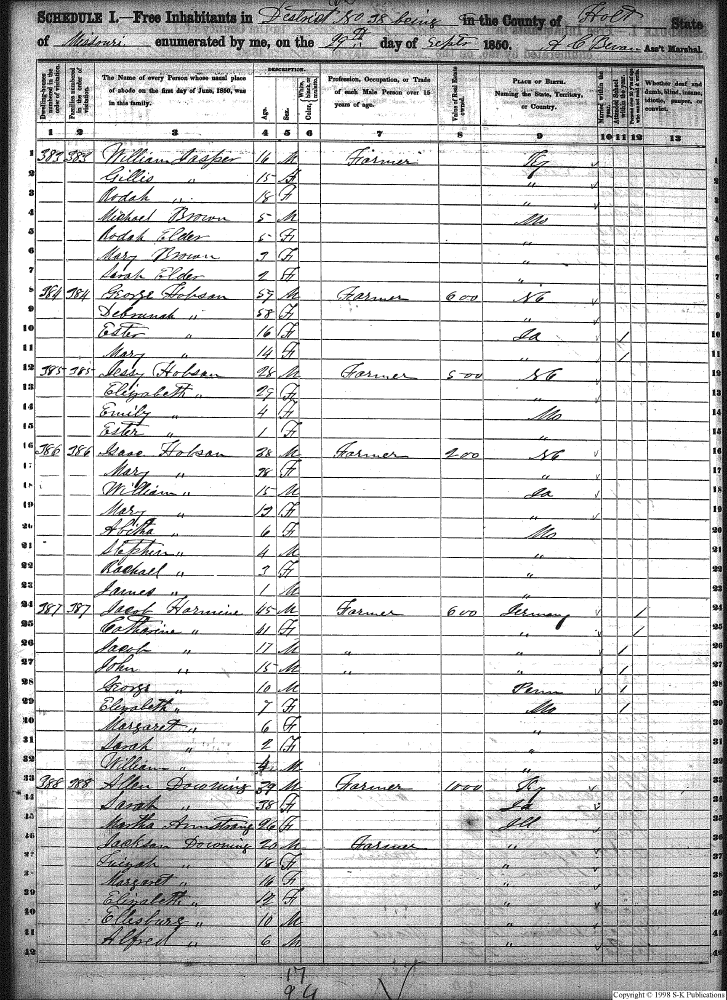 SCHEDULE I.—Free Inhabitants in District No 38 being in the County of Holt State
of Missouri enumerated by me, on the 29th day of Septr 1850. Ass't Marshal.
Dwelling-houses numbered in the order of visitation.
Families numbered in the order of visitation.
The Name of every Person whose usual place of abode on the first day of June, 1850, was in this family.
DESCRIPTION.
Age.
Sex.
Profession, Occupation, or Trade of each Male Person over 15 years of age.
Value of Real Estate owned.
PLACE OF BIRTH. Naming the State, Territory, or Country.
Whether deaf and dumb, blind, insane, idiotic, pauper, or convict.
1 2 3 4 5 6 7 8 9 10 11 12 13
1 383 383 William Jasper 16 M Farmer Ky
2 Gillis " 15
3 Rodah " 18 F "
4 Michael Brown 5 M Mo
5 Rodah Elder 5 F "
6 Mary Brown 3 F "
7 Sarah Elder 2 F "
8 384 384 George Hobson 59 M Farmer 600 NC
9 " 58 F "
10 Ester " 16 F Ia
11 Mary " 14 F "
12 385 385 Jessy Hobson 28 M Farmer 500 NC
13 Elizabeth " 29 F "
14 Emily " 4 F Mo
15 Ester " 1 F "
16 386 386 Isaac Hobson 38 M Farmer 200 NC
17 Mary " 38 F "
18 William " 15 M Ia
19 Mary " F "
20 Abitha " 6 F Mo
21 Stephen " 4 M "
22 Rachael " 3 F "
23 James " 1 M "
24 387 387 Jacob Harmine 45 M Farmer 600 Germany
25 Catharine " 41 F "
26 Jacob " 17 M " "
27 John " 15 M " "
28 George " 10 M Penn
29 Elizabeth " 7 F Mo
30 Margaret " 6 F "
31 Sarah " 2 F "
32 William " M "
33 388 388 Allen Downing 39 M Farmer 1000 Ky
34 Sarah " 38 F
35 Martha Armstrong 26 F Ill
36 Jackson Downing 20 M Farmer "
37 " 18 F "
38 Margaret " 16 F "
39 Elizabeth " 12 F "
40 Ellsburg " 10 M "
41 Alfred " 6 M "
42
17
24
Copyright © 1998 S-K Publications